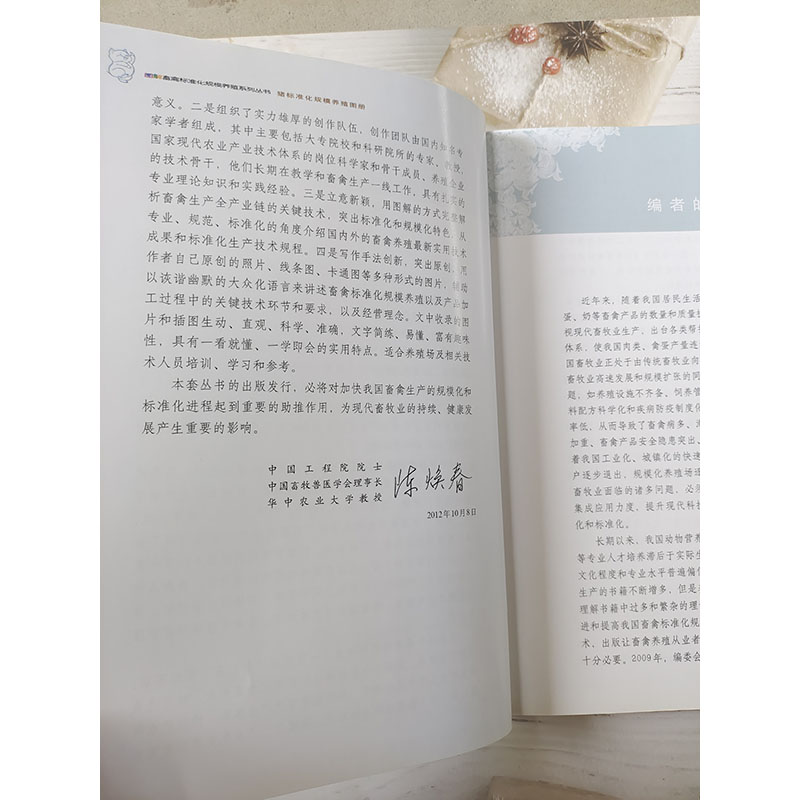 图解畜禽标准化规模养殖系列丛书 猪标准化规模养殖图册
意义。二是组织了实力雄厚的创作队伍，创作团队由国内知名专
家学者组成，其中主要包括大专院校和科研院所的专家、教授，
国家现代农业产业技术体系的岗位科学家和骨干成员、养殖企业
的技术骨干，他们长期在教学和畜禽生产一线工作，具有扎实的
专业理论知识和实践经验。三是立意新颖，用图解的方式完整解
析畜禽生产全产业链的关键技术，突出标准化和规模化特色，从
专业、规范、标准化的角度介绍国内外的畜禽养殖最新实用技术
成果和标准化生产技术规程。四是写作手法创新，突出原创，用
作者自己原创的照片、线条图、卡通图等多种形式的图片，辅助
以诙谐幽默的大众化语言来讲述畜禽标准化规模养殖以及产品加
工过程中的关键技术环节和要求，以及经营理念。文中收录的图
片和插图生动、直观、科学、准确，文字简练、易懂、富有趣味
性，具有一看就懂、一学即会的实用特点。适合养殖场及相关技
术人员培训、学习和参考。
本套丛书的出版发行，必将对加快我国畜禽生产的规模化和
标准化进程起到重要的助推作用，为现代畜牧业的持续、健康发
展产生重要的影响。
中国工程院院士
中国畜牧兽医学会理事长
华中农业大学教授
陈焕春
2012年10月8日
编者的
近年来，随着我国居民生活
蛋、奶等畜禽产品的数量和质量
视现代畜牧业生产，出台各类帮
体系，使我国肉类、禽蛋产量连
国畜牧业正处于由传统畜牧业向
畜牧业高速发展和规模扩张的同
题，如养殖设施不齐备、饲养管
料配方科学化和疾病防疫制度化
率低，从而导致了畜禽病多、
加重、畜禽产品安全隐患突出、
着我国工业化、城镇化的快速
户逐步退出，规模化养殖场逐
畜牧业面临的诸多问题，必须
集成应用力度，提升现代科技
化和标准化。
长期以来，我国动物营养
等专业人才培养滞后于实际生
文化程度和专业水平普遍偏
生产的书籍不断增多，但是
理解书籍中过多和繁杂的理
进和提高我国畜禽标准化规
术，出版让畜禽养殖从业者
十分必要。2009年，编委会